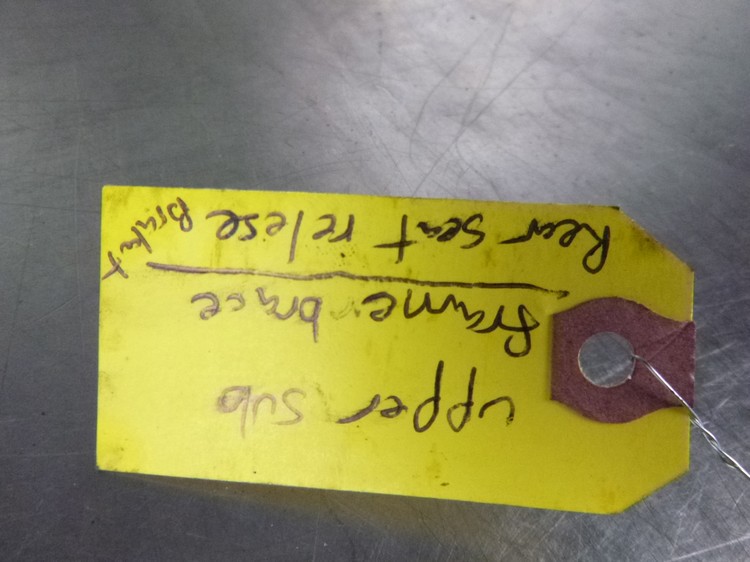 upper sub
frame brace
Rear seat relese Braket